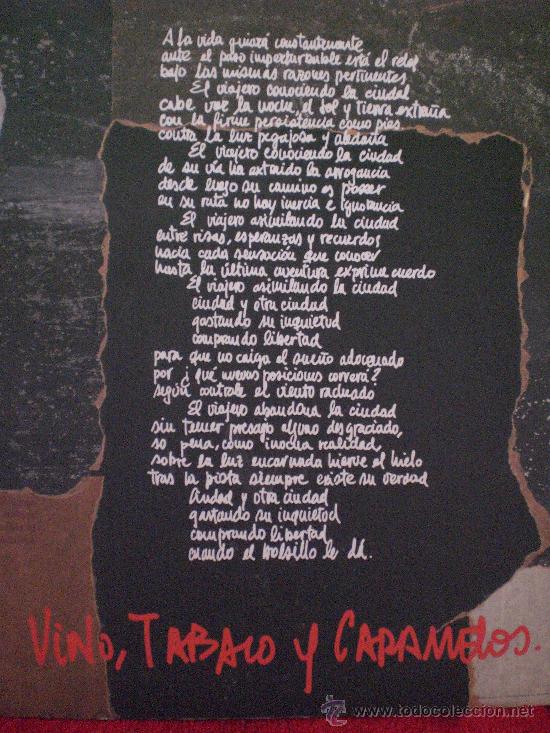 A la vida quizá constantemente
ante el paso imperturbable está el reloj
bajo las mismas razones pertinentes
El viajero conociendo la ciudad
cabe vae la noche, el sol y tierra extraña
con la firme persistencia como pies
contra la luz pegajosa y aledaña
El viajero conociendo la ciudad
de su vía ha extraido la arrogancia
desde luego su camino es poseer
en su ruta no hay inercia e ignorancia
El viajero asimilando la ciudad
entre risas, esperanzas y recuerdos
hacia cada sensación que conocer
hasta la última aventura exprime cuerdo
El viajero asimilando la ciudad
ciudad y otra ciudad
gastando su inquietud
comprando libertad
para que no caiga el sueño adecuado
por ¿qué nuevas posiciones correrá?
según controle el viento racheado
El viajero abandona la ciudad
sin temer presagio alguno desgraciado,
so pena, como inocua realidad,
sobre la luz encarnada hierve el hielo
tras la pista siempre existe su verdad
Ciudad y otra ciudad
gastando su inquietud
comprando libertad
cuando el bolsillo le dá.
VINO, TABACO Y CARAMELOS.
www.todocoleccion.net